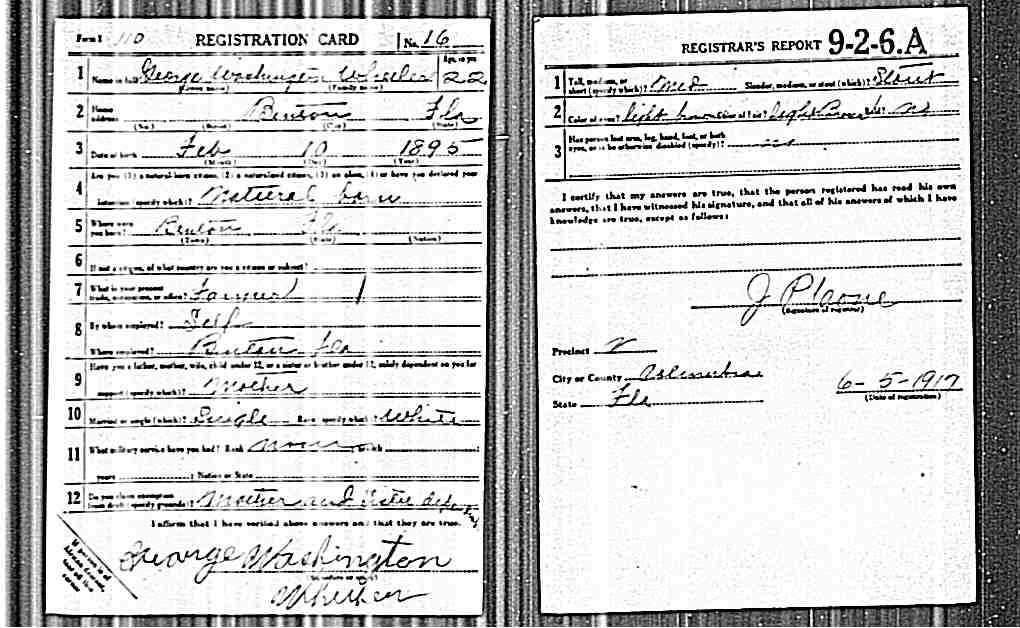 Form 1 110 REGISTRATION CARD No. 16
1 Name in full George Washington Wheeler Age, in yrs 22
(Given name) (Family name)
2 Home address Benton Fla
(No.) (Street) (City) (State)
3 Date of birth Feb 10 1895
(Month) (Day) (Year)
4 Are you (1) a natural-born citizen, (2) a naturalized citizen, (3) an alien, (4) or have you declared your
intention (specify which)? Natural born
5 Where were you born? Benton Fla
(Town) (State) (Nation)
6 If not a citizen, of what country are you a citizen or subject?
7 What is your present trade, occupation, or office? Farmer 1
8 By whom employed? Self
Where employed? Benton Fla
9 Have you a father, mother, wife, child under 12, or a sister or brother under 12, solely dependent on you for
support (specify which)? Mother
10 Married or single (which)? Single Race (specify which)? White
11 What military service have you had? Rank None ; branch
years ; Nation or State
12 Do you claim exemption from draft (specify grounds)? Mother and
I affirm that I have verified above answers and that they are true.
George Washington
(Signature or mark)
If person is of African descent, tear off this corner
REGISTRAR'S REPORT 9-2-6.A
1 Tall, medium, or short (specify which)? Med Slender, medium, or stout (which)? Stout
2 Color of eyes? light brown Color of hair? light Brown Bald? No
3 Has person lost arm, leg, hand, foot, or both
eyes, or is he otherwise disabled (specify)? no
I certify that my answers are true, that the person registered has read his own
answers, that I have witnessed his signature, and that all of his answers of which I have
knowledge are true, except as follows:
J P
(Signature of registrar)
Precinct
City or County Columbia
State Fla 6-5-1917
(Date of registration)